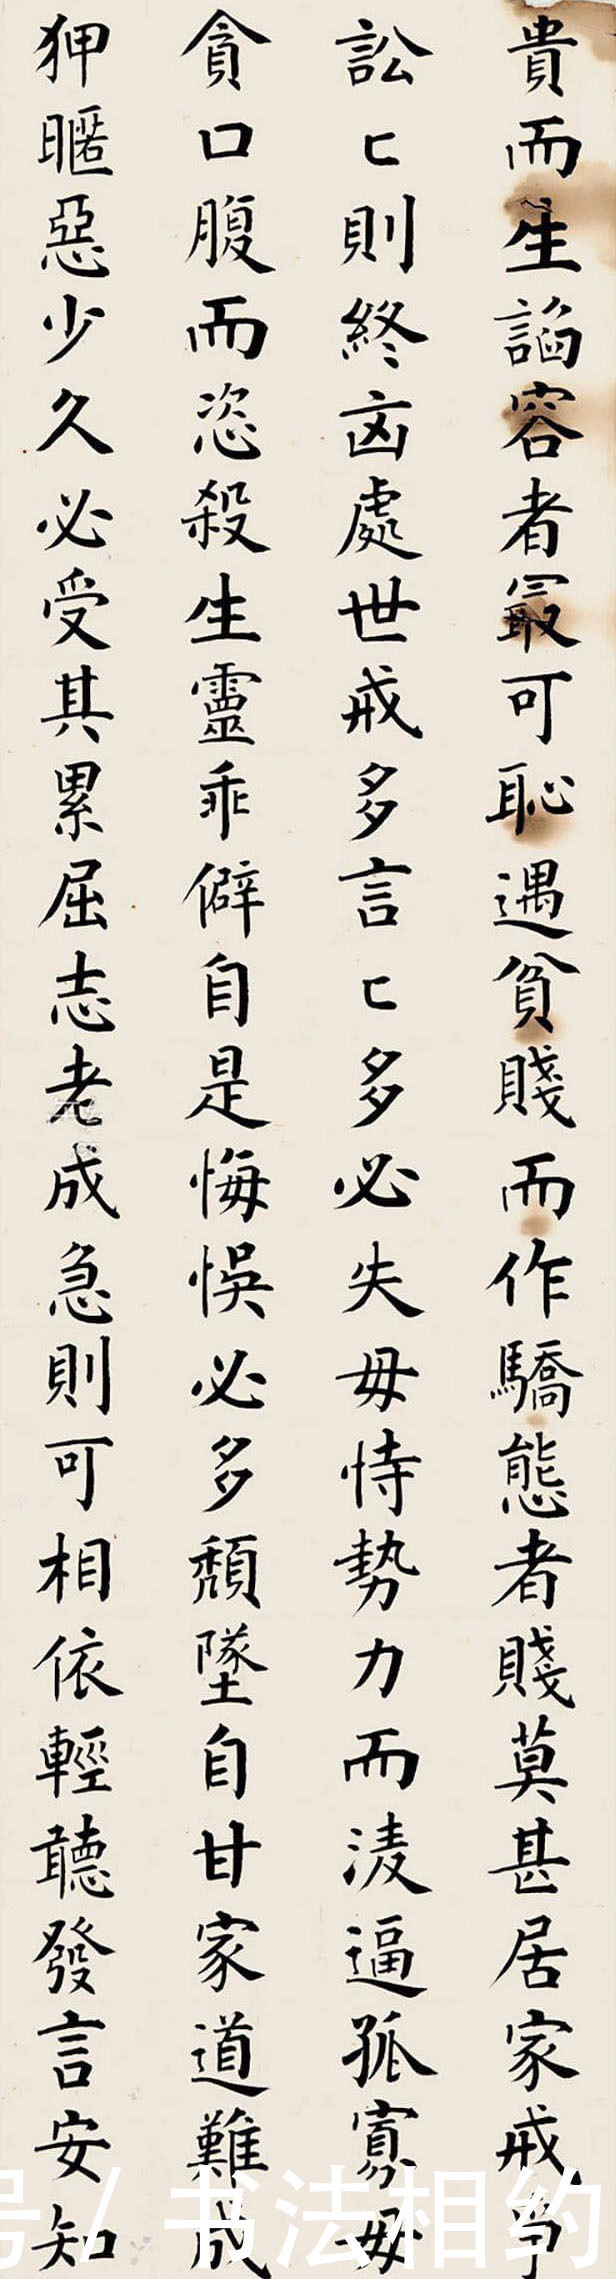 貴而生諂容者最可恥遇貧賤而作驕態者賤莫甚居家戒爭
訟匕則終凶處世戒多言匕多必失毋恃勢力而淩逼孤寡毋
貪口腹而恣殺生靈乖僻自是悔悞必多頹墜自甘家道難成
狎暱惡少久必受其累屈志老成急則可相依輕聽發言安知
号/书法相约